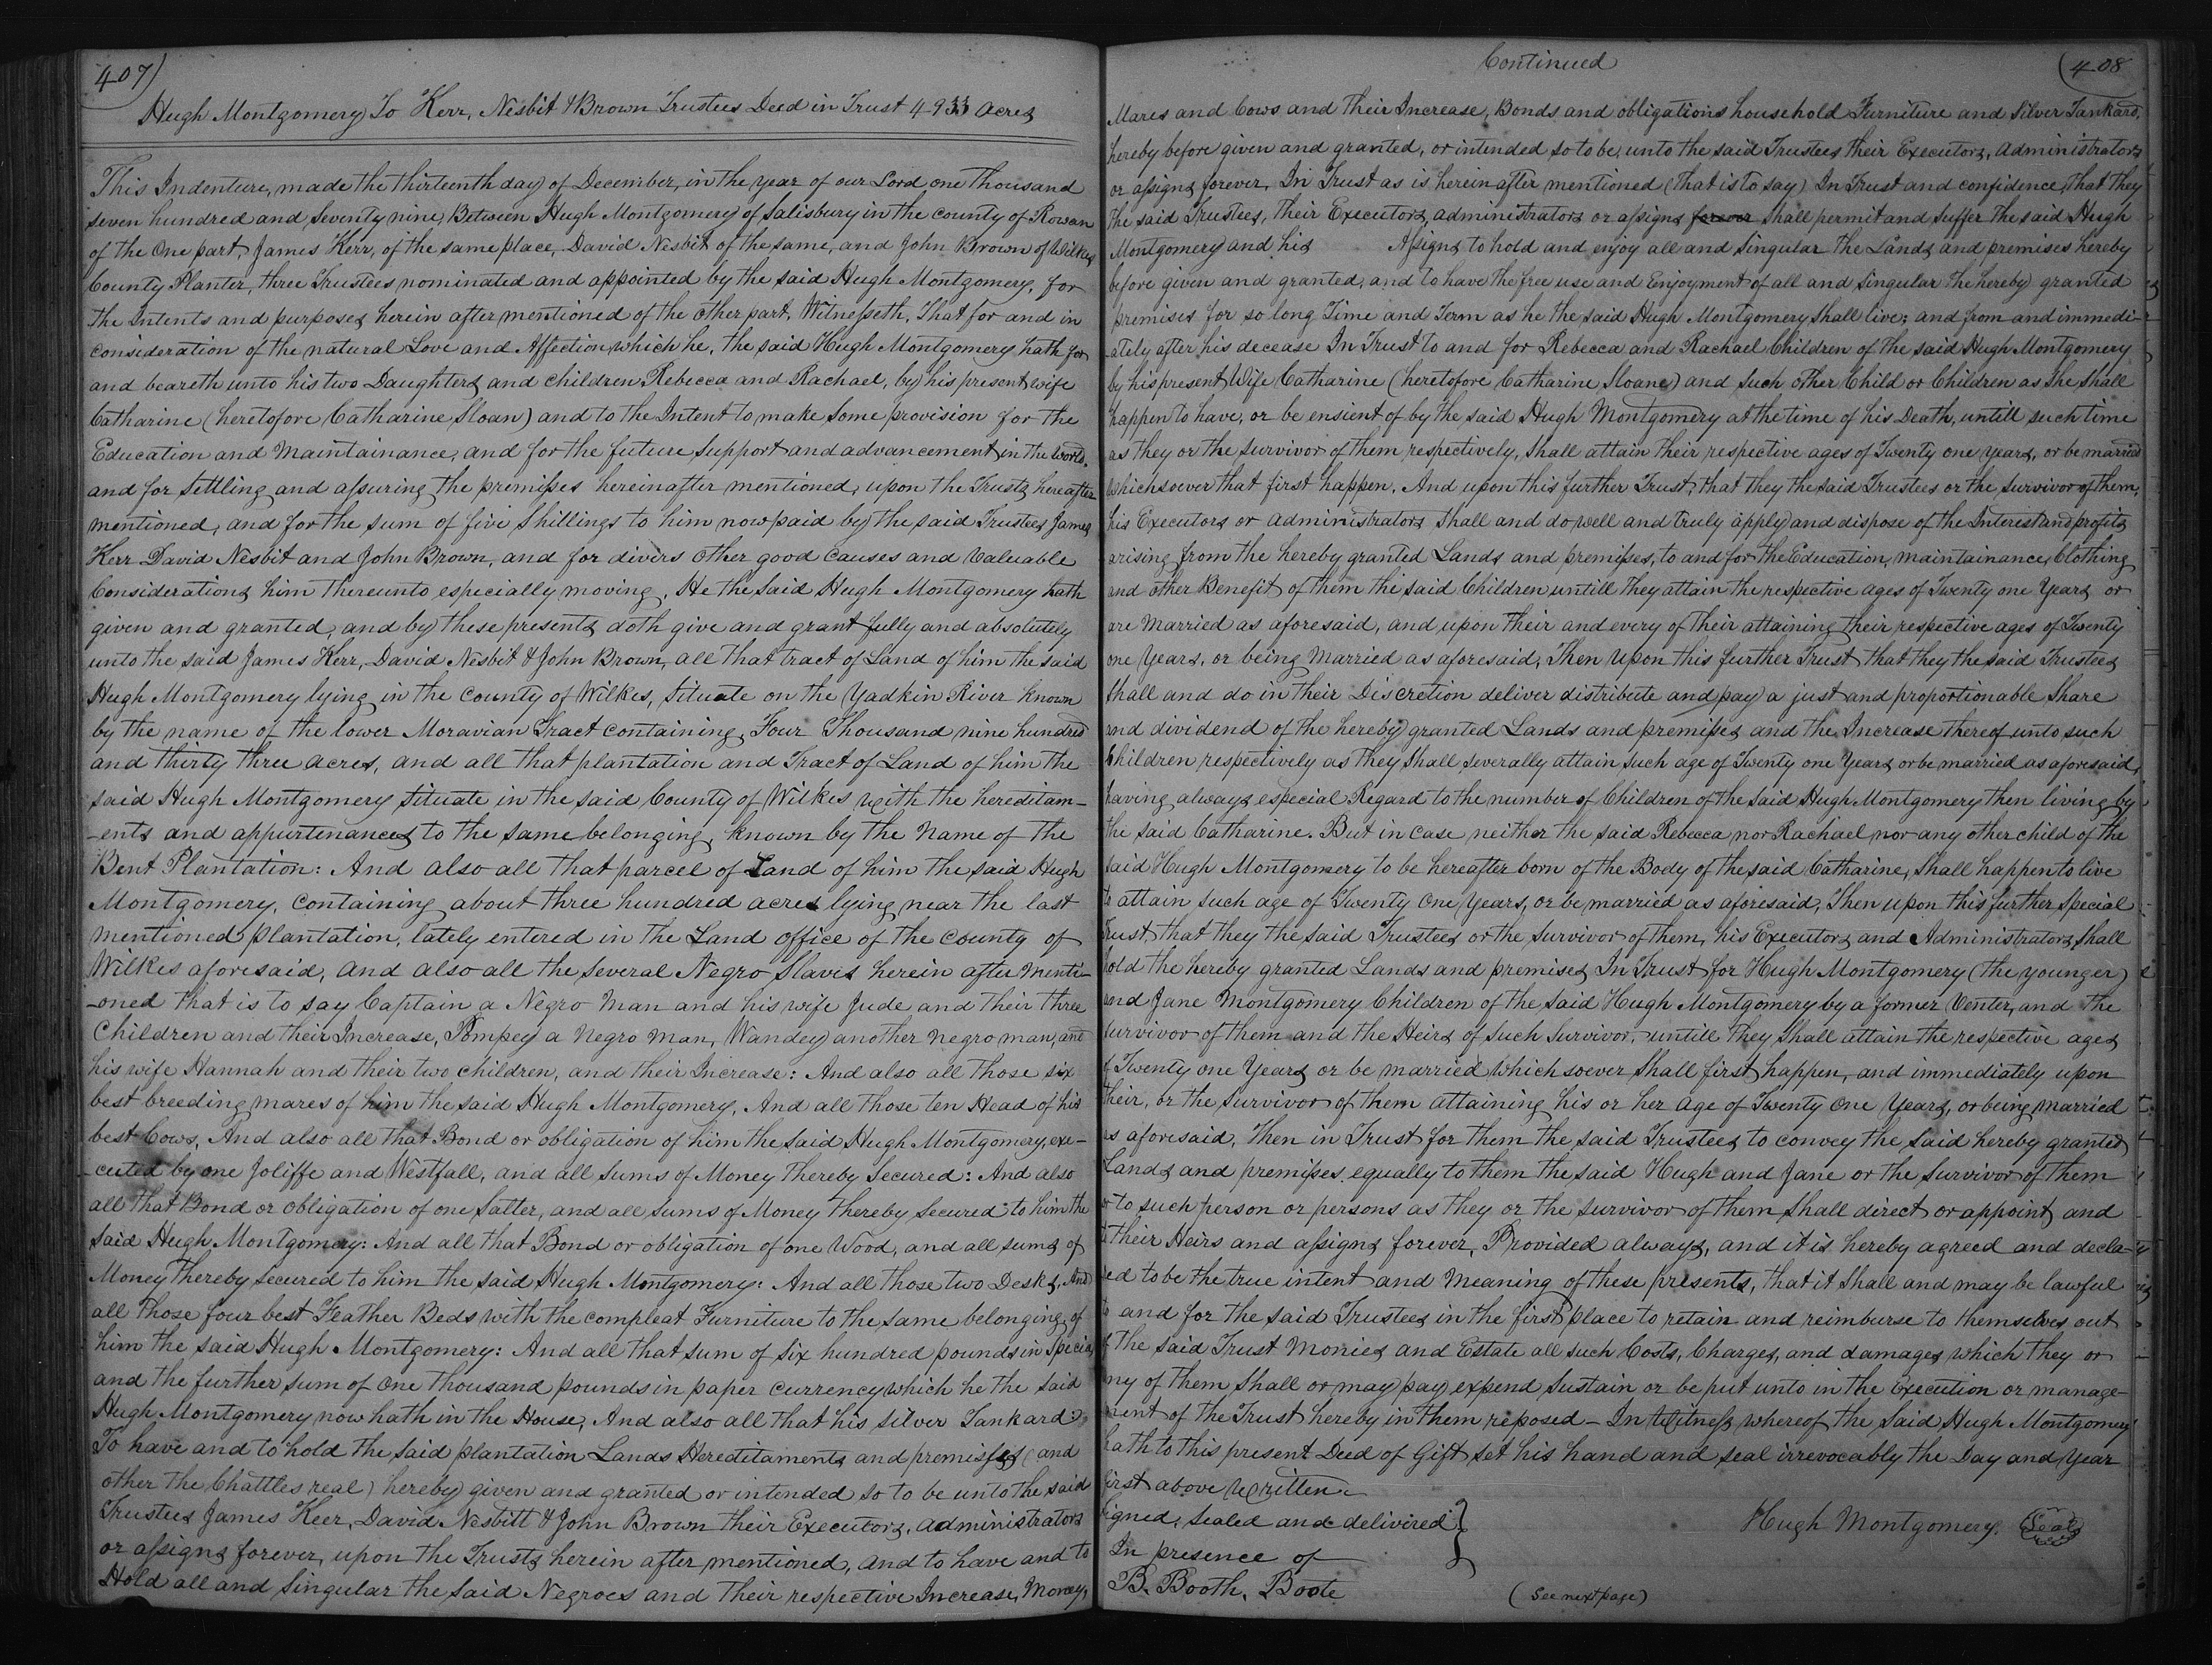 407)
Hugh Montgomery To Kerr, Nesbit & Brown Trustees Deed in Trust 4933 Acres
This Indenture, made the thirteenth day of December, in the year of our Lord one thousand
seven hundred and seventy nine, Between Hugh Montgomery of Salisbury in the county of Rowan
of the One part, James Kerr, of the same place, David Nesbit of the same, and John Brown of Wilkes
County Planter, three Trustees nominated and appointed by the said Hugh Montgomery, for
the intents and purposes herein after mentioned of the other part, Witnesseth, That for and in
consideration of the natural Love and Affection which he, the said Hugh Montgomery hath for
and beareth unto his two Daughters and children Rebecca and Rachael, by his present wife
Catharine (heretofore Catharine Sloan) and to the Intent to make some provision for the
Education and Maintainance, and for the future support and advancement in the world,
and for settling and assuring the premises hereinafter mentioned, upon the Trusts hereafter
mentioned, and for the sum of five shillings to him now paid by the said Trustees James
Kerr David Nesbit and John Brown, and for divers other good causes and Valuable
Considerations him thereunto especially moving, He the said Hugh Montgomery hath
given and granted, and by these presents doth give and grant fully and absolutely
unto the said James Kerr, David Nesbit & John Brown, all that tract of Land of him the said
Hugh Montgomery lying in the County of Wilkes, situate on the Yadkin River known
by the name of the lower Moravian Tract containing Four Thousand nine hundred
and thirty three acres, and all that plantation and Tract of Land of him the
said Hugh Montgomery situate in the said County of Wilkes with the hereditam-
-ents and appurtenances to the same belonging, known by the Name of the
Bent Plantation: And also all that parcel of Land of him the said Hugh
Montgomery, containing about three hundred acres lying near the last
mentioned plantation, lately entered in the Land office of the County of
Wilkes aforesaid, and also all the several Negro Slaves herein after menti-
-oned that is to say Captain a Negro Man and his wife Jude, and their three
Children and their Increase, Pompey a Negro Man, Wandey another negro man, and
his wife Hannah and their two children, and their Increase: And also all those six
best breeding mares of him the said Hugh Montgomery, And all those ten Head of his
best Cows, And also all that Bond or obligation of him the said Hugh Montgomery, exe-
-cuted by one Joliffe and Westfall, and all sums of Money thereby Secured: And also
all that Bond or obligation of one Satter, and all sums of Money thereby secured to him the
said Hugh Montgomery: And all that Bond or obligation of one Wood, and all sums of
Money thereby secured to him the said Hugh Montgomery: And all those two Desks, And
all those four best Feather Beds with the compleat Furniture to the same belonging of
him the said Hugh Montgomery: And all that sum of six hundred pounds in specia,
and the further sum of one thousand pounds in paper currency which he the said
Hugh Montgomery now hath in the House, And also all that his silver Tankard:
To have and to hold the said plantation Lands Hereditaments and premisses (and
other the Chattles real) hereby given and granted or intended so to be unto the said
Trustees James Keer, David Nesbitt & John Brown their Executors, administrators
or assigns forever, upon the Trusts herein after mentioned, and to have and to
Hold all and singular the said Negroes and their respective Increase, Money,
Continued
(408
Mares and Cows and their Increase, Bonds and obligations household Furniture and silver Tankard,
hereby before given and granted, or intended so to be, unto the said Trustees their Executors, administrators
or assigns forever, In Trust as is herein after mentioned (that is to say) In Trust and confidence that they
the said Trustees, their Executors administrators or assigns forever shall permit and suffer the said Hugh
Montgomery and his Assigns to hold and enjoy all and singular the Lands and premises hereby
before given and granted, and to have the free use and Enjoyment of all and singular the hereby granted
premises for so long Time and Term as he the said Hugh Montgomery shall live; and from and immedi-
-ately after his decease In Trust to and for Rebecca and Rachael Children of the said Hugh Montgomery
by his present Wife Catharine (heretofore Catharine Sloane) and such other Child or Children as she shall
happen to have, or be ensient of by the said Hugh Montgomery at the time of his Death, untill such time
as they or the survivor of them respectively, shall attain their respective ages of Twenty one years, or be married
which soever that first happen. And upon this further Trust, that they the said Trustees or the survivor of them,
his Executors or administrators shall and do well and truly apply and dispose of the Interest and profits
arising from the hereby granted Lands and premises, to and for the Education, maintainance, Clothing
and other Benefit of them the said Children untill they attain the respective ages of Twenty one Years or
are Married as aforesaid, and upon their and every of their attaining their respective ages of Twenty
one Years, or being Married as aforesaid, Then Upon this further Trust that they the said Trustees
shall and do in their Discretion deliver distribute and pay a just and proportionable Share
and dividend of the hereby granted Lands and premises and the Increase thereof unto such
Children respectively as they shall severally attain such age of Twenty one Years or be married as aforesaid,
having always especial Regard to the number of Children of the said Hugh Montgomery then living by
the said Catharine. But in case neither the said Rebecca nor Rachael nor any other child of the
said Hugh Montgomery to be hereafter born of the Body of the said Catharine, shall happen to live
to attain such age of Twenty one Years, or be married as aforesaid, Then upon this further special
Trust, that they the said Trustees or the survivor of them, his Executors and Administrators shall
hold the hereby granted Lands and premises In Trust for Hugh Montgomery (the younger)
and Jane Montgomery Children of the said Hugh Montgomery by a former Venter, and the
survivor of them and the Heirs of such survivor, untill they shall attain the respective ages
of Twenty one Years or be married which soever shall first happen, and immediately upon
their, or the survivor of them attaining his or her age of Twenty one Years, or being married
as aforesaid, Then in Trust for them the said Trustees to convey the said hereby granted
Lands and premises equally to them the said Hugh and Jane or the survivor of them
or to such person or persons as they or the survivor of them shall direct or appoint and
to their Heirs and assigns forever, Provided always, and it is hereby agreed and decla-
red to be the true intent and Meaning of these presents, that it shall and may be lawful
to and for the said Trustees in the first place to retain and reimburse to themselves out
of the said Trust Monies and Estate all such Costs, Charges, and damages which they or
any of them shall or may pay expend sustain or be put unto in the Execution or manage-
ment of the Trust hereby in them reposed - In Witness whereof the said Hugh Montgomery
hath to this present Deed of Gift set his hand and seal irrevocably the Day and Year
first above written.
Signed, sealed and delivired }
In presence of
Hugh Montgomery (Seal)
B. Booth. Boote
(see next page)